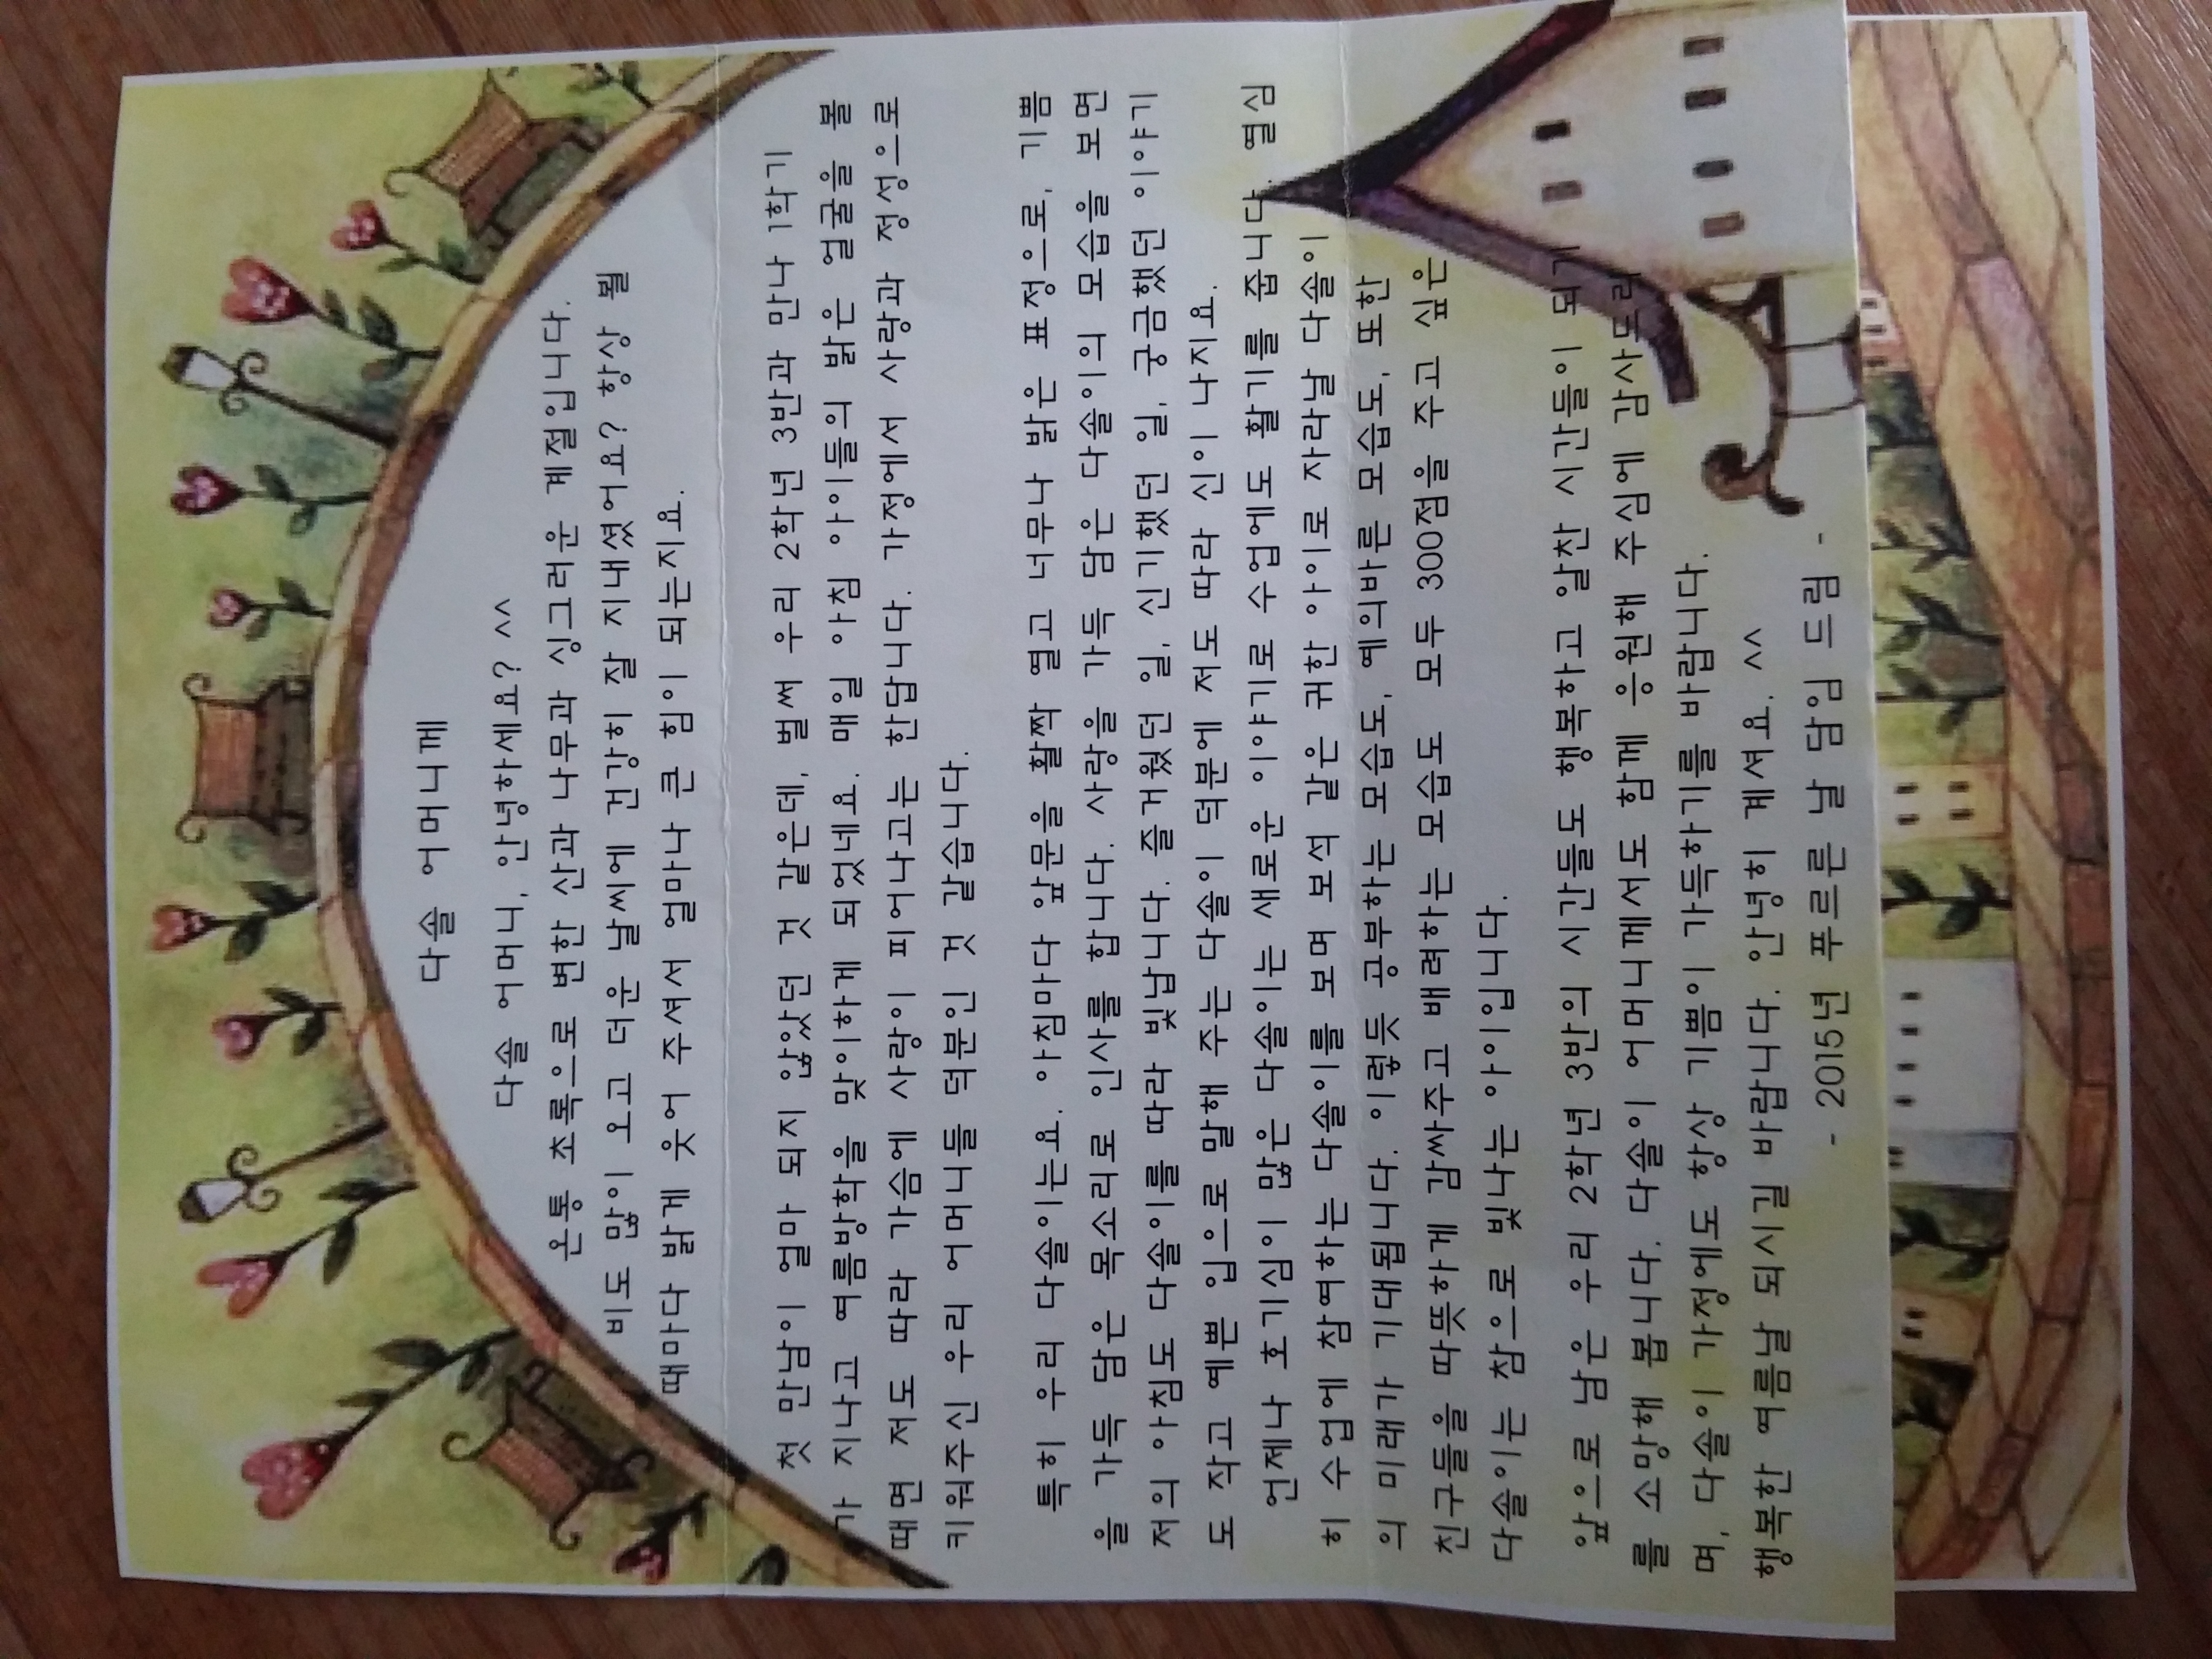 다솔 어머니께
다솔 어머니, 안녕하세요? ^^
온통 초록으로 변한 산과 나무과 싱그러운 계절입니다.
비도 많이 오고 더운 날씨에 건강히 잘 지내셨어요? 항상 뵐
때마다 밝게 웃어 주셔서 얼마나 큰 힘이 되는지요.
첫 만남이 얼마 되지 않았던 것 같은데, 벌써 우리 2학년 3반과 만나 1학기
가 지나고 여름방학을 맞이하게 되었네요. 매일 아침 아이들의 밝은 얼굴을 볼
때면 저도 따라 가슴에 사랑이 피어나고는 한답니다. 가정에서 사랑과 정성으로
키워주신 우리 어머니들 덕분인 것 같습니다.
특히 우리 다솔이는요. 아침마다 앞문을 활짝 열고 너무나 밝은 표정으로, 기쁨
을 가득 담은 목소리로 인사를 합니다. 사랑을 가득 담은 다솔이의 모습을 보면
저의 아침도 다솔이를 따라 빛납니다. 즐거웠던 일, 신기했던 일, 궁금했던 이야기
도 작고 예쁜 입으로 말해 주는 다솔이 덕분에 저도 따라 신이 나지요.
언제나 호기심이 많은 다솔이는 새로운 이야기로 수업에도 활기를 줍니다. 열심
히 수업에 참여하는 다솔이를 보며 보석 같은 귀한 아이로 자라날 다솔이
의 미래가 기대됩니다. 이렇듯 공부하는 모습도, 예의바른 모습도, 또한
친구들을 따뜻하게 감싸주고 배려하는 모습도 모두 300점을 주고 싶은
다솔이는 참으로 빛나는 아이입니다.
앞으로 남은 우리 2학년 3반의 시간들도 행복하고 알찬 시간들이 되기
를 소망해 봅니다. 다솔이 어머니께서도 함께 응원해 주심에 감사드리
며, 다솔이 가정에도 항상 기쁨이 가득하기를 바랍니다.
행복한 여름날 되시길 바랍니다. 안녕히 계셔요. ^^
- 2015년 푸르른 날 담임 드림 -